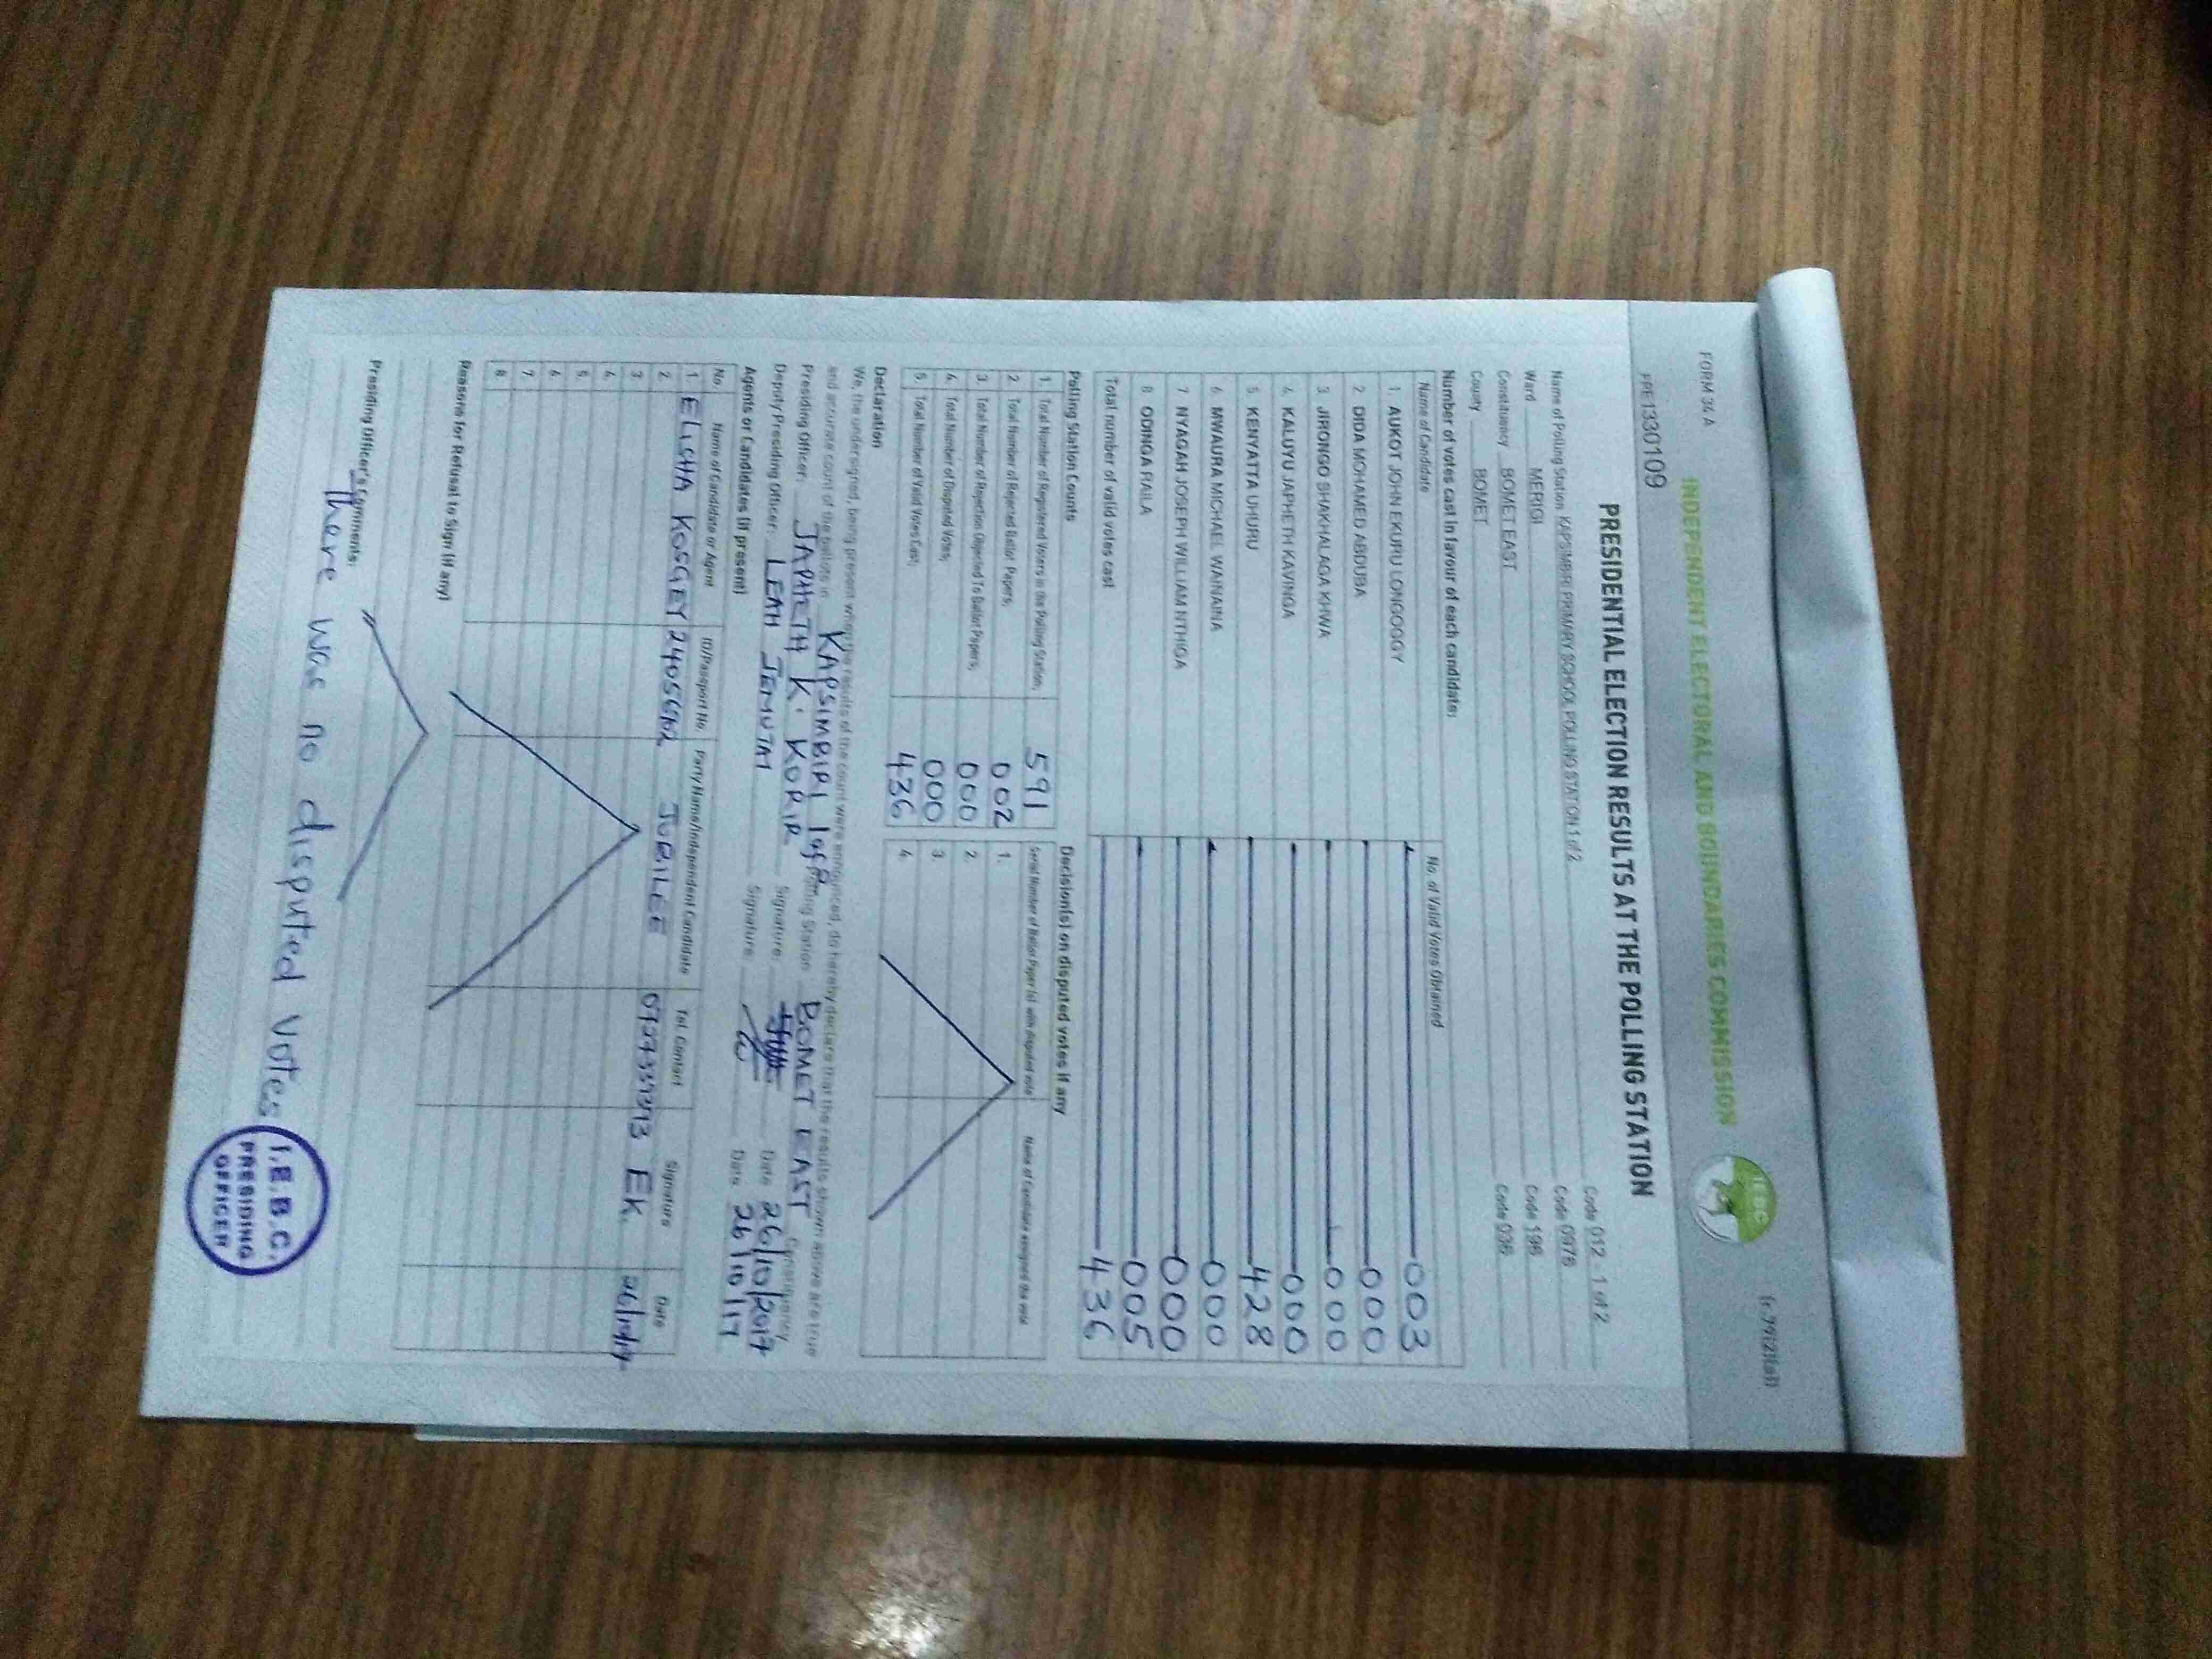 FORM 34 A
INDEPENDENT ELECTORAL AND BOUNDARIES COMMISSION
IEBC
PRE1330109
PRESIDENTIAL ELECTION RESULTS AT THE POLLING STATION
Name of Polling Station KAPSIMBIRI PRIMARY SCHOOL POLLING STATION 1 of 2 Code 012 - 1 of 2
Ward MERIGI Code 0976
Constituency BOMET EAST Code 196
County BOMET Code 036
Number of votes cast in favour of each candidate:
Name of Candidate No. of Valid Votes Obtained
1. AUKOT JOHN EKURU LONGOGGY 003
2. DIDA MOHAMED ABDUBA 000
3. JIRONGO SHAKHALAGA KHWA 000
4. KALUYU JAPHETH KAVINGA 000
5. KENYATTA UHURU 428
6. MWAURA MICHAEL WAINAINA 000
7. NYAGAH JOSEPH WILLIAM NTHIGA 000
8. ODINGA RAILA 005
Total number of valid votes cast 436
Polling Station Counts
1. Total Number of Registered Voters in the Polling Station; 591
2. Total Number of Rejected Ballot Papers; 002
3. Total Number of Rejection Objected To Ballot Papers; 000
4. Total Number of Disputed Votes; 000
5. Total Number of Valid Votes Cast; 436
Decision(s) on disputed votes if any
Serial Number of Ballot Paper (s) with disputed vote Name of Candidate assigned the vote
1.
2.
3.
4.
Declaration
We, the undersigned, being present when the results of the count were announced, do hereby declare that the results shown above are true
and accurate count of the ballots in KAPSIMBIRI 1 of 2 Polling Station BOMET EAST Constituency
Presiding Officer: JAPHETH K. KORIR Signature: Date 26/10/2017
Deputy Presiding Officer: LEAH JEMUTAI Signature: Date 26/10/17
Agents or Candidates (if present)
No. Name of Candidate or Agent ID/Passport No. Party Name/Independent Candidate Tel. Contact Signature Date
1. ELISHA KOSGEY JUBILEE EK.
2.
3.
4.
5.
6.
7.
8.
Reasons for Refusal to Sign (if any)
Presiding Officer's Comments:
There was no disputed votes
I.E.B.C.
PRESIDING
OFFICER